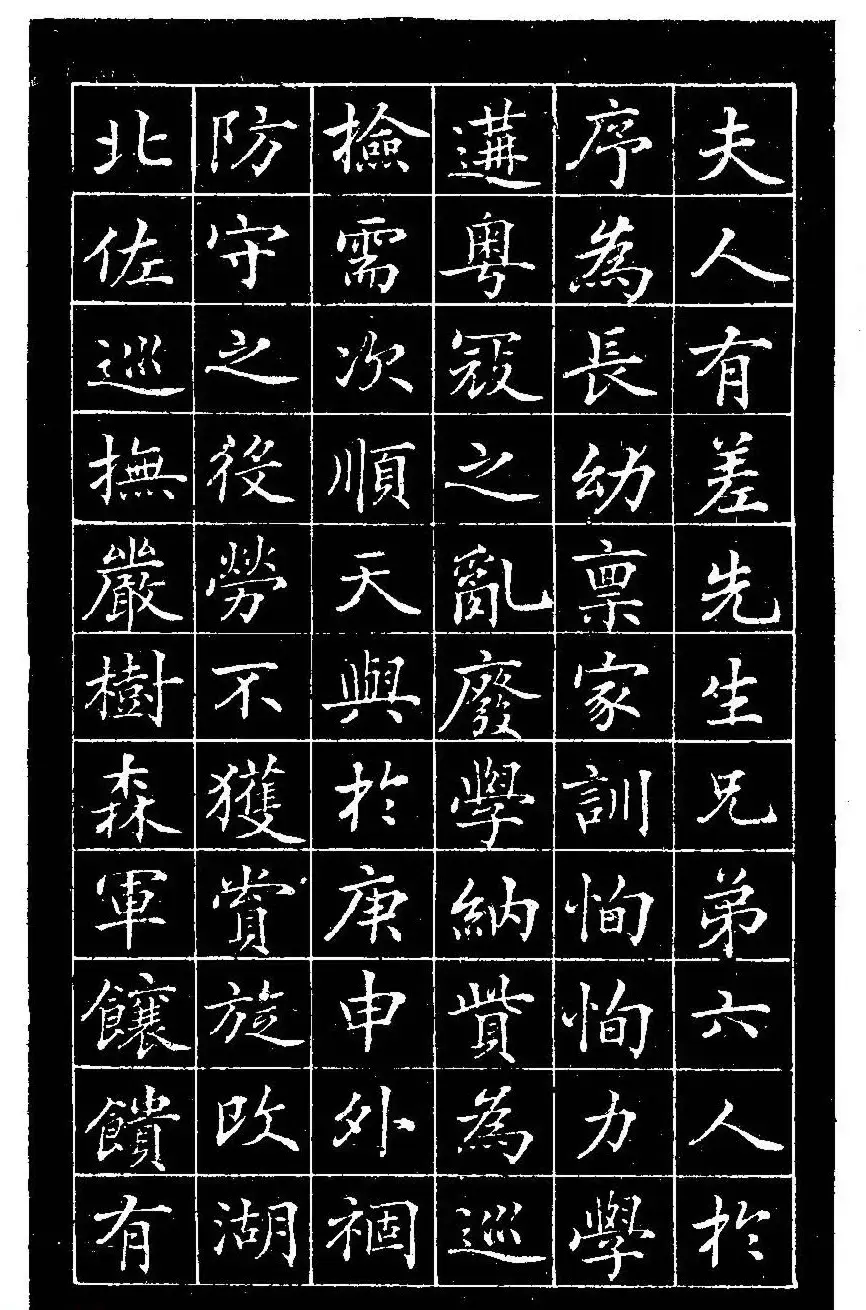 夫人有差先生兄弟六人於
序為長幼稟家訓恂恂力學
遘粵寇之亂廢學納貲為巡
檢需次順天與於庚申外禍
防守之役勞不獲賞旋改湖
北佐巡撫嚴樹森軍饟饋有